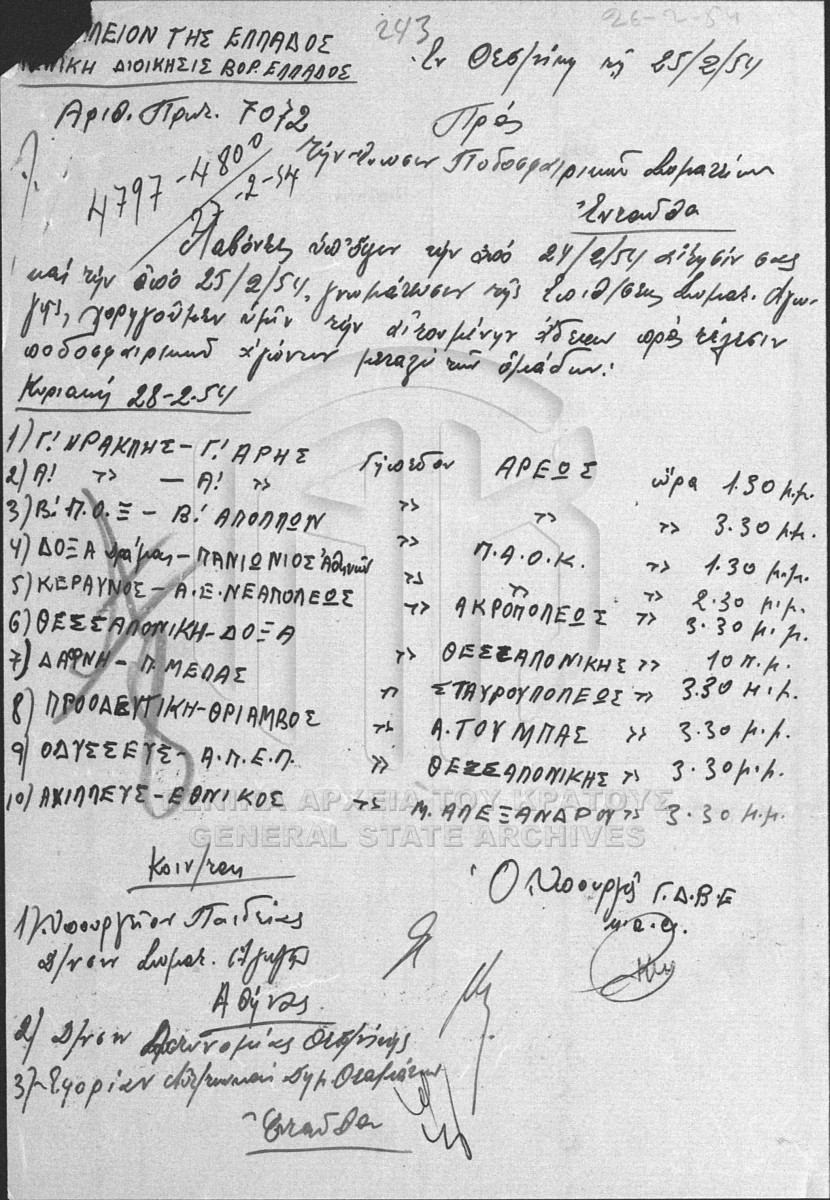 243
26-2-54
ΛΕΙΟΝ ΤΗΣ ΕΛΛΑΔΟΣ
ΓΕΝΙΚΗ ΔΙΟΙΚΗΣΙΣ ΒΟΡ. ΕΛΛΑΔΟΣ
Ἐν Θεσ/νίκη τῇ 25/2/54
Ἀριθ. Πρωτ. 7072
Πρός
4797-4800
27-2-54
Τήν Ἕνωσιν Ποδοσφαιρικῶν Σωματείων
Ἐνταῦθα
Λαβόντες ὑπ' ὄψιν τήν ἀπό 24/2/54 αἴτησίν σας
καί τήν ἀπό 25/2/54 γνωμάτευσιν τῆς Ἐπιθ/σεως Σωματ. Ἀγω-
γῆς, χορηγοῦμεν ὑμῖν τήν αἰτουμένην ἄδειαν πρός τέλεσιν
ποδοσφαιρικῶν ἀγώνων μεταξύ τῶν ὁμάδων:
Κυριακή 28-2-54
1) Γ! ΗΡΑΚΛΗΣ - Γ! ΑΡΗΣ Γήπεδον ΑΡΕΩΣ ὥρα 1.30 μ.μ.
2) Α! " - Α! " " " " 3.30 μ.μ.
3) Β! Π.Ο.Ξ - Β! ΑΠΟΛΛΩΝ " Π.Α.Ο.Κ. " 1.30 μ.μ.
4) ΔΟΞΑ Δράμας - ΠΑΝΙΩΝΙΟΣ Ἀθηνῶν " " " 2.30 μ.μ.
5) ΚΕΡΑΥΝΟΣ - Α.Ε. ΝΕΑΠΟΛΕΩΣ " ΑΚΡΟΠΟΛΕΩΣ " 3.30 μ.μ.
6) ΘΕΣΣΑΛΟΝΙΚΗ - ΔΟΞΑ " ΘΕΣΣΑΛΟΝΙΚΗΣ " 10 π.μ.
7) ΔΑΦΝΗ - Π. ΜΕΛΑΣ " ΣΤΑΥΡΟΥΠΟΛΕΩΣ " 3.30 μ.μ.
8) ΠΡΟΟΔΕΥΤΙΚΗ - ΘΡΙΑΜΒΟΣ " Α. ΤΟΥΜΠΑΣ " 3.30 μ.μ.
9) ΟΔΥΣΣΕΥΣ - Α.Π.Ε.Λ. " ΘΕΣΣΑΛΟΝΙΚΗΣ " 3.30 μ.μ.
10) ΑΧΙΛΛΕΥΣ - ΕΘΝΙΚΟΣ " Μ. ΑΛΕΞΑΝΔΡΟΥ " 3.30 μ.μ.
ΓΕΝΙΚΑ ΑΡΧΕΙΑ ΤΟΥ ΚΡΑΤΟΥΣ
GENERAL STATE ARCHIVES
Κοιν/σις
Ὁ Ὑπουργός Γ.Δ.Β.Ε
1) Ὑπουργεῖον Παιδείας
Δ/νσιν Σωματ. Ἀγωγῆς
Ἀθήνας
2) Δ/νσιν Ἀστυνομίας Θεσ/νίκης
3) Ἐφορίαν Δημ. Θεαμάτων
Ἐνταῦθα